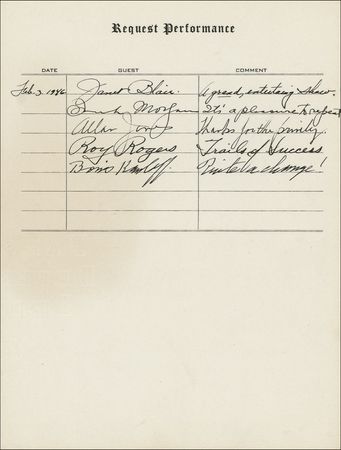 Request Performance
DATE GUEST COMMENT
Feb. 3. 1946 Janet Blair. A grand, entertaining show.
Frank Morgan It's a pleasure to repeat
Allan Jones Thanks for the
Roy Rogers Trails of Success
Boris Karloff. Quite a change!